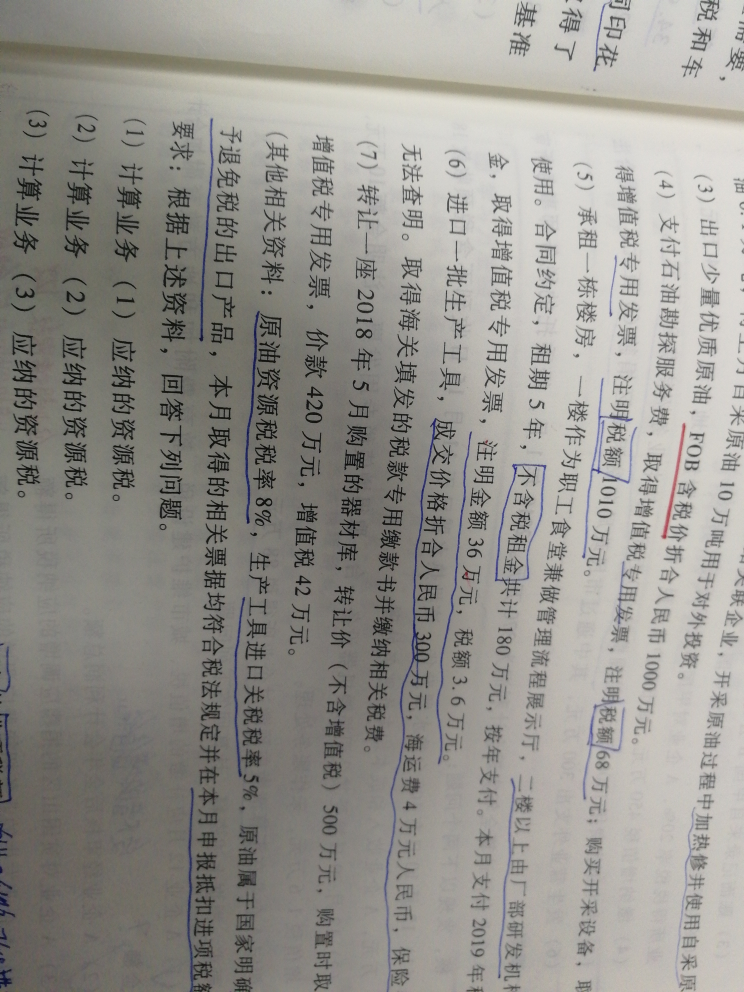 需要，
税和车
同印花
得了
基准
油 自采原油10万吨用于对外投资。
关联企业，开采原油过程中加热修井使用自采原
（3）出口少量优质原油，FOB含税价折合人民币1000万元。
（4）支付石油勘探服务费，取得增值税专用发票，注明税额68万元；购买开采设备，取
得增值税专用发票，注明税额1010万元。
（5）承租一栋楼房，一楼作为职工食堂兼做管理流程展示厅，二楼以上由厂部研发机构
使用。合同约定，租期5年，不含税租金共计180万元，按年支付。本月支付2019年租
金，取得增值税专用发票，注明金额36万元，税额3.6万元。
（6）进口一批生产工具，成交价格折合人民币300万元，海运费4万元人民币，保险
无法查明。取得海关填发的税款专用缴款书并缴纳相关税费。
（7）转让一座2018年5月购置的器材库，转让价（不含增值税）500万元，购置时取
增值税专用发票，价款420万元，增值税42万元。
（其他相关资料：原油资源税税率8%，生产工具进口关税税率5%，原油属于国家明确
予退免税的出口产品，本月取得的相关票据均符合税法规定并在本月申报抵扣进项税额
要求：根据上述资料，回答下列问题。
（1）计算业务（1）应纳的资源税。
（2）计算业务（2）应纳的资源税。
（3）计算业务（3）应纳的资源税。